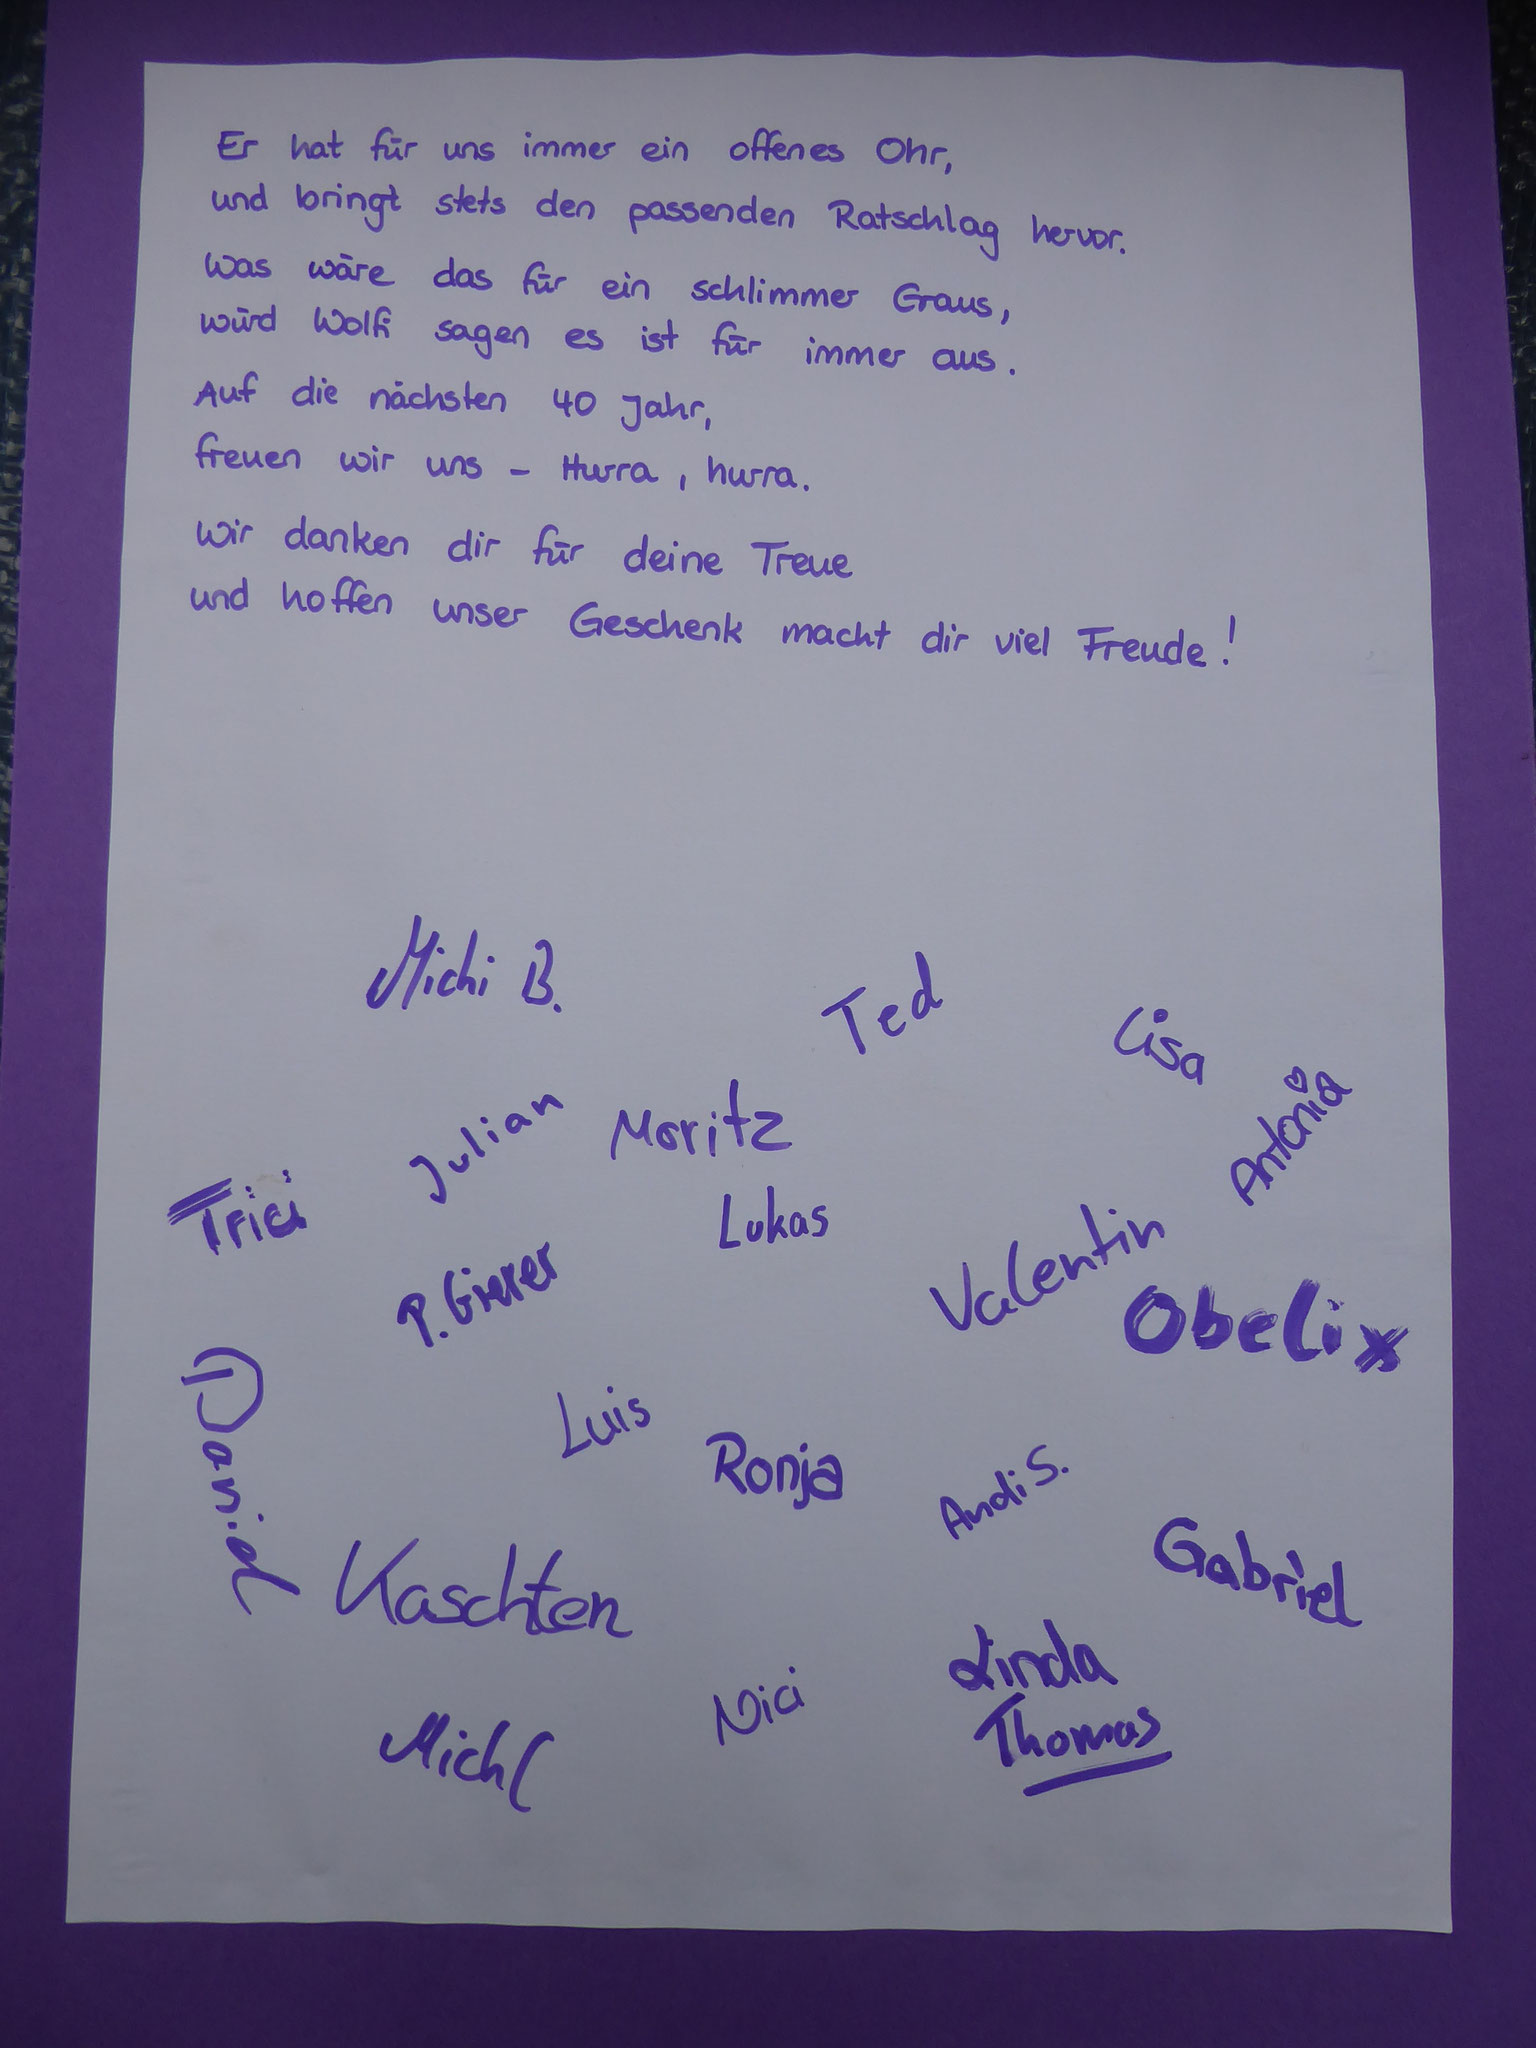 Er hat für uns immer ein offenes Ohr,
und bringt stets den passenden Ratschlag hervor.
Was wäre das für ein schlimmer Graus,
würd Wolfi sagen es ist für immer aus.
Auf die nächsten 40 Jahr,
freuen wir uns - Hurra, hurra.
Wir danken dir für deine Treue
und hoffen unser Geschenk macht dir viel Freude!
Michi B.
Ted
Lisa
Julian
Moritz
Antonia
Trici
Lukas
P. Gierer
Valentin
Obelix
Daniel
Luis
Ronja
Andi S.
Kaschten
Gabriel
Michl
Nici
Linda
Thomas